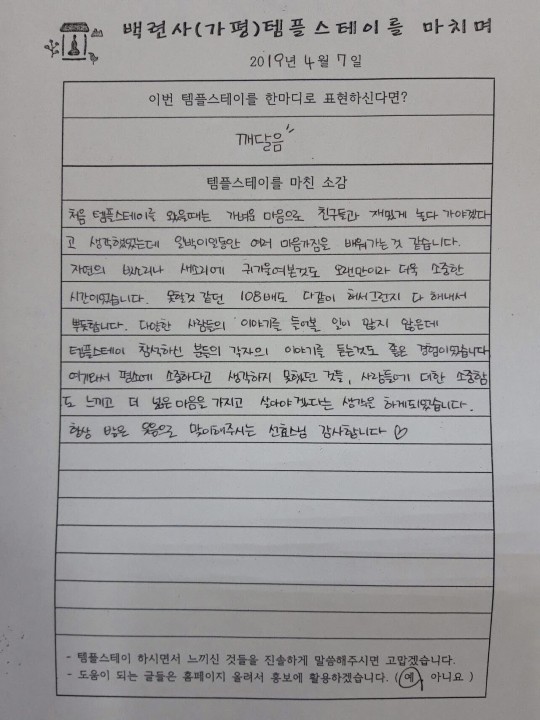 백련사(가평)템플스테이를 마치며
2019년 4월 7일
이번 템플스테이를 한마디로 표현하신다면?
깨달음
템플스테이를 마친 소감
처음 템플스테이를 왔을때는 가벼운 마음으로 친구들과 재밌게 놀다 가야겠다
고 생각했었는데 일박이일동안 여러 마음가짐을 배워가는 것 같습니다.
자연의 빗소리나 새소리에 귀기울여본것도 오랜만이라 더욱 소중한
시간이었습니다. 못할것 같던 108배도 다같이 해서그런지 다 해내서
뿌듯합니다. 다양한 사람들의 이야기를 들어볼 일이 많지 않은데
템플스테이 참석하신 분들의 각자의 이야기를 듣는것도 좋은 경험이었습니다
여기와서 평소에 소중하다고 생각하지 못했던 것들, 사람들에 대한 소중함
도 느끼고 더 넓은 마음을 가지고 살아야 겠다는 생각을 하게되었습니다.
항상 밝은 웃음으로 맞이해주시는 선효스님 감사합니다 ♡
- 템플스테이 하시면서 느끼신 것들을 진솔하게 말씀해주시면 고맙겠습니다.
- 도움이 되는 글들은 홈페이지 올려서 홍보에 활용하겠습니다. ( 예, 아니요 )